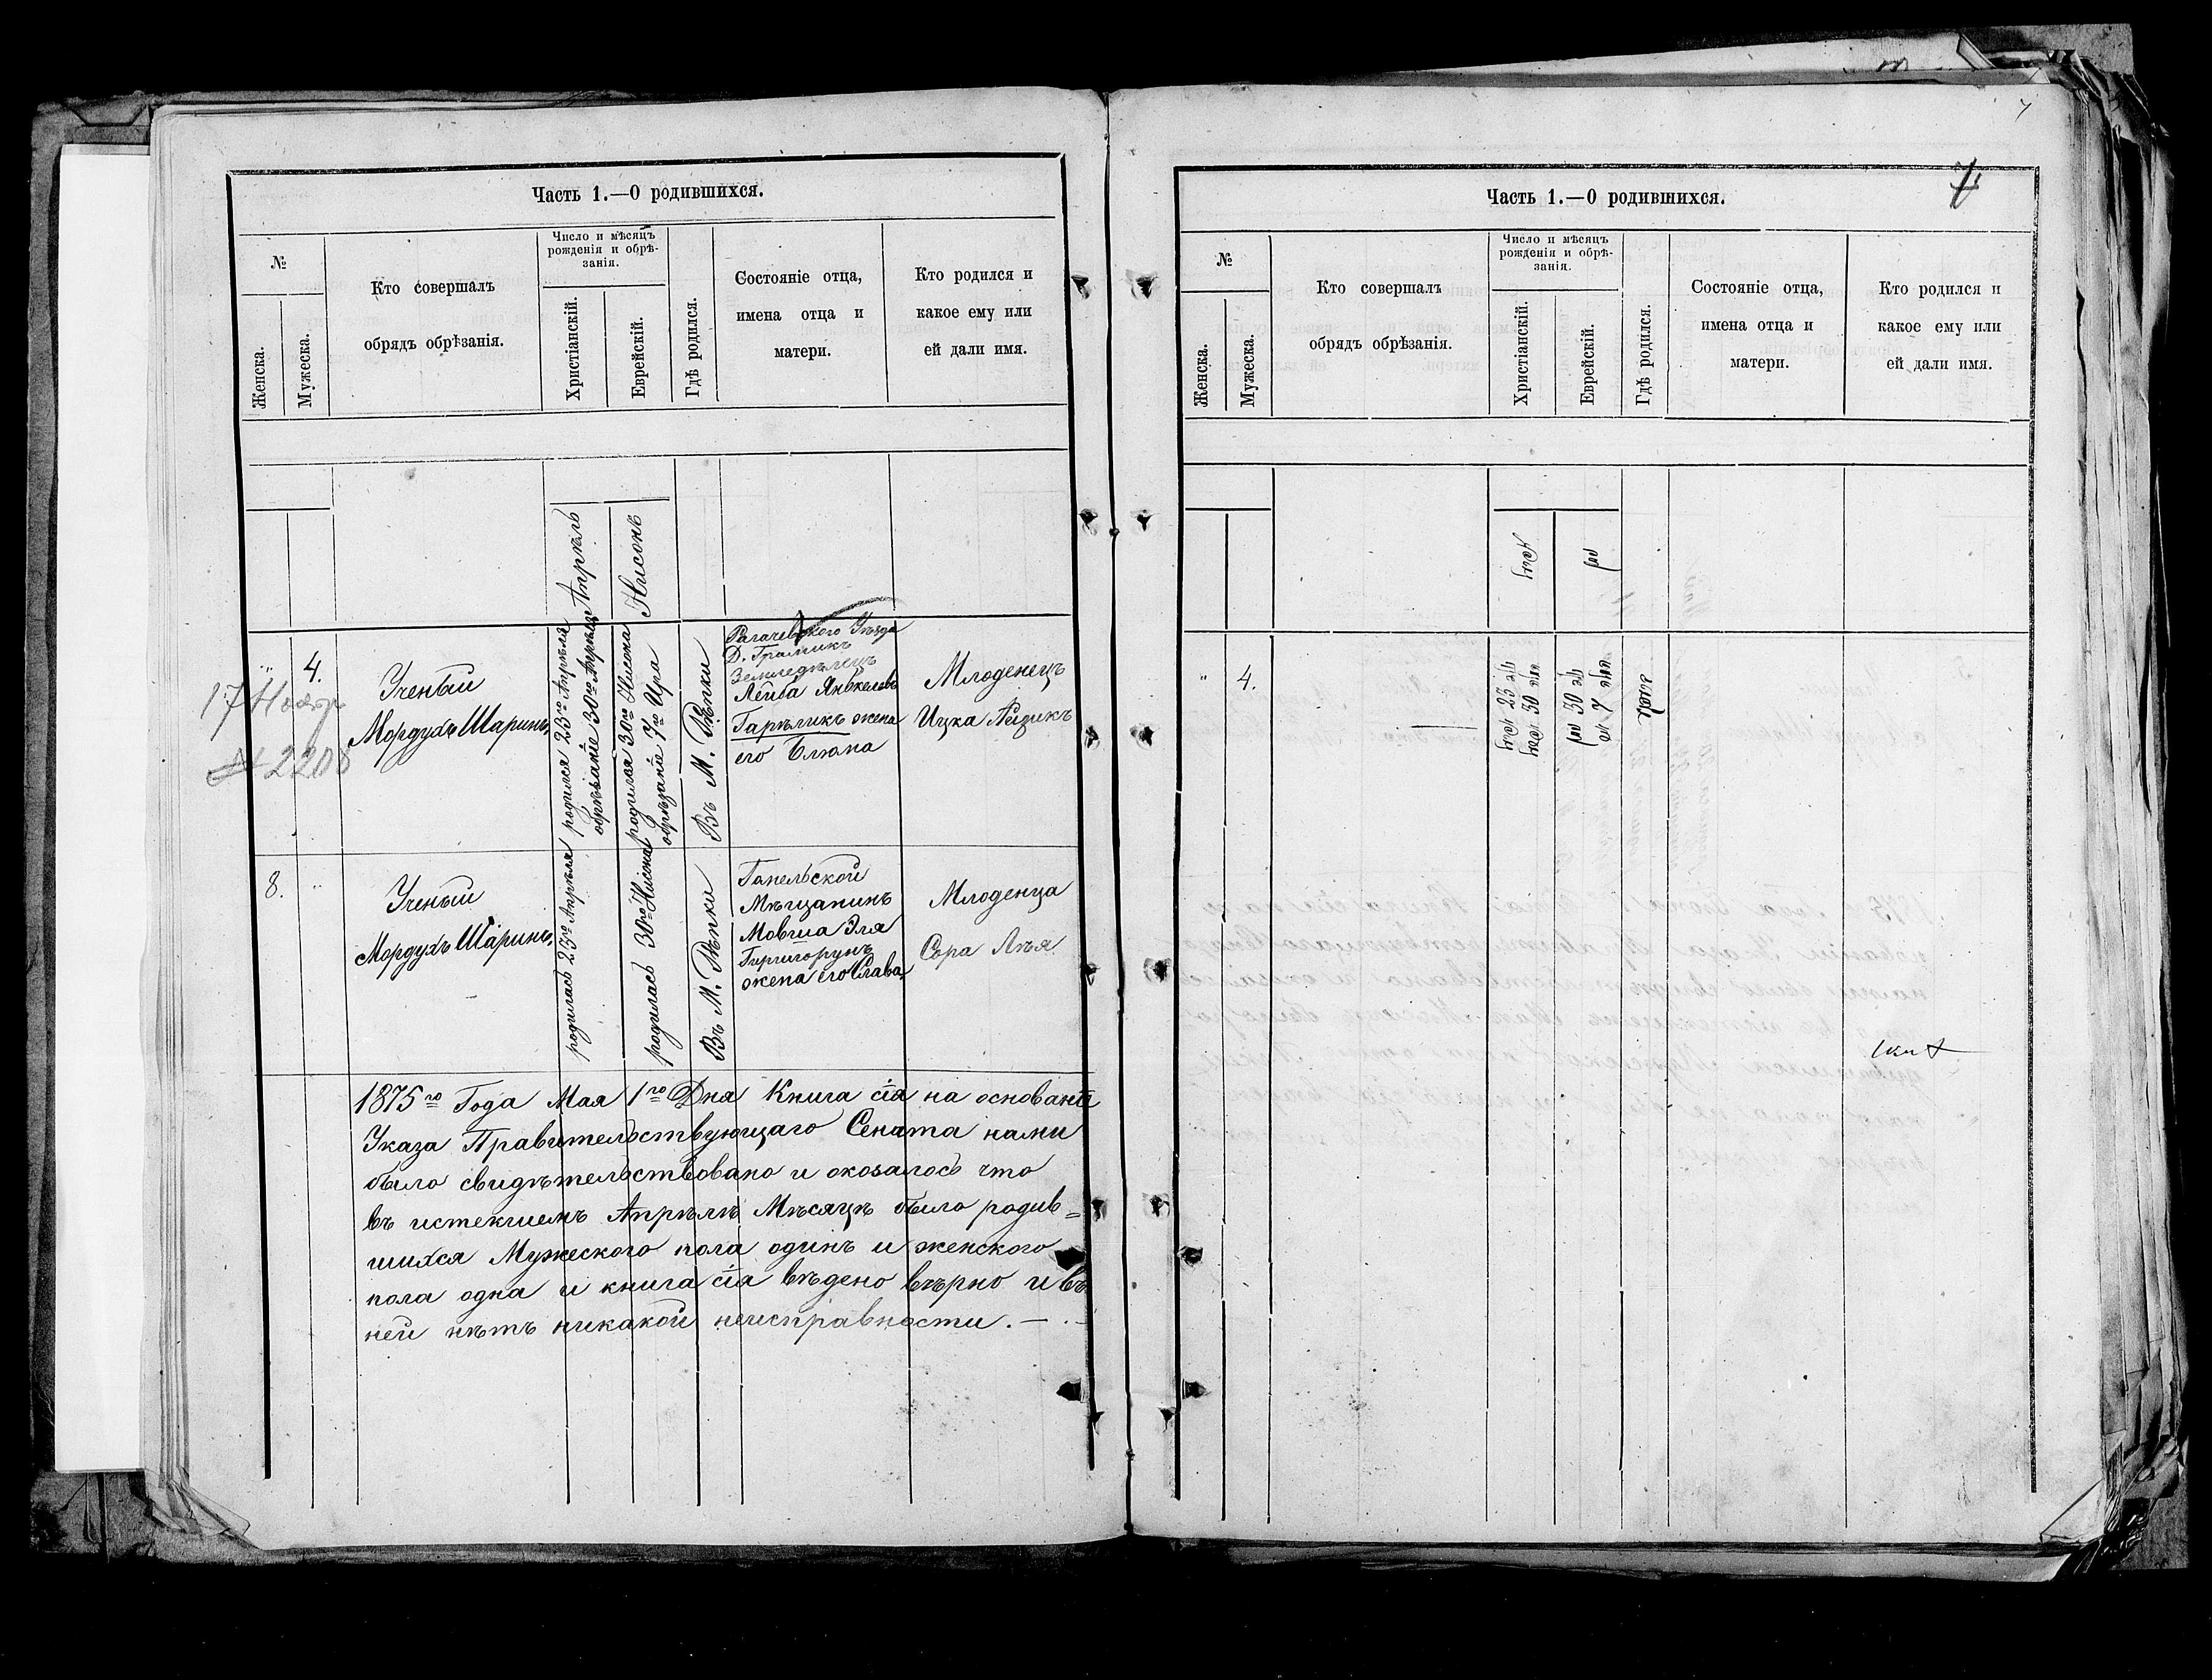 Часть 1.—О родившихся.
№
Женска.
Мужеска.
Кто совершалъ
обрядъ обрѣзанія.
Число и мѣсяцъ
рожденія и обрѣ-
занія.
Христіанскій.
Еврейскій.
Гдѣ родился.
Состояніе отца,
имена отца и
матери.
Кто родился и
какое ему или
ей дали имя.
Апрѣль
Нисонъ
"
4.
17
№ 2208
Ученый
Мордухъ Шаринъ
родился 23го Апрѣля
обрѣзаніе 30го Апрѣля
родился 30го Нисона
обрѣзаніе 7го Ира
Въ М. Рѣпки
Рагачевского Уѣзда
Д.
Земледѣлецъ
Лейба Янкелевъ
Гарѣликъ жена
его Блюма
Младенецъ
Ицка Айзикъ
8.
"
Ученый
Мордухъ Шаринъ
родилась 23го Апрѣля
родилась 30го Нисона
Въ М. Рѣпки
Гапельской
Мѣщанинъ
Мовша Эля
жена его Слава
Младенца
Сора Лѣя
1875го Года Мая 1го Дня Книга сія на основаніе
Указа Правительствующаго Сената нами
было свидѣтельствовано и окозалось что
въ истекшемъ Апрѣлѣ Мѣсяцѣ было родив=
шихся Мужеского пола одинъ и женского
пола одна и книга сія вѣдено вѣрно и въ
ней нѣтъ никакой неисправности. —
7
7
Часть 1.—О родившихся.
№
Женска.
Мужеска.
Кто совершалъ
обрядъ обрѣзанія.
Число и мѣсяцъ
рожденія и обрѣ-
занія.
Христіанскій.
Еврейскій.
Гдѣ родился.
Состояніе отца,
имена отца и
матери.
Кто родился и
какое ему или
ей дали имя.
"
4.
23
30
30